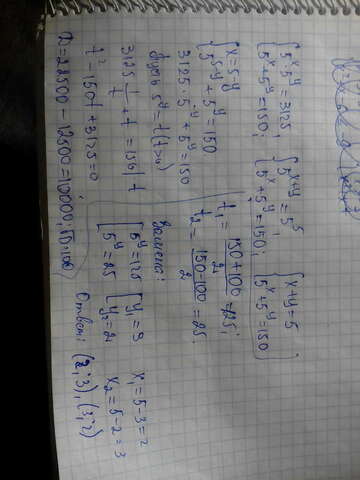 {5ˣ·5ʸ=3125, {5ˣ⁺ʸ=5⁵, {x+y=5
{5ˣ+5ʸ=150; {5ˣ+5ʸ=150; {5ˣ+5ʸ=150
{x=5-y
{5⁵⁻ʸ+5ʸ=150
3125·5⁻ʸ+5ʸ=150
Пусть 5ʸ=t (t>0)
3125·1/t+t=150 | t
t²-150t+3125=0
D=22500-12500=10000; √D=100
t₁=(150+100)/2=125;
t₂=(150-100)/2=25.
Замена:
[5ʸ=125 [y₁=3 x₁=5-3=2
[5ʸ=25 [y₂=2 x₂=5-2=3
Ответ: (2;3),(3;2)